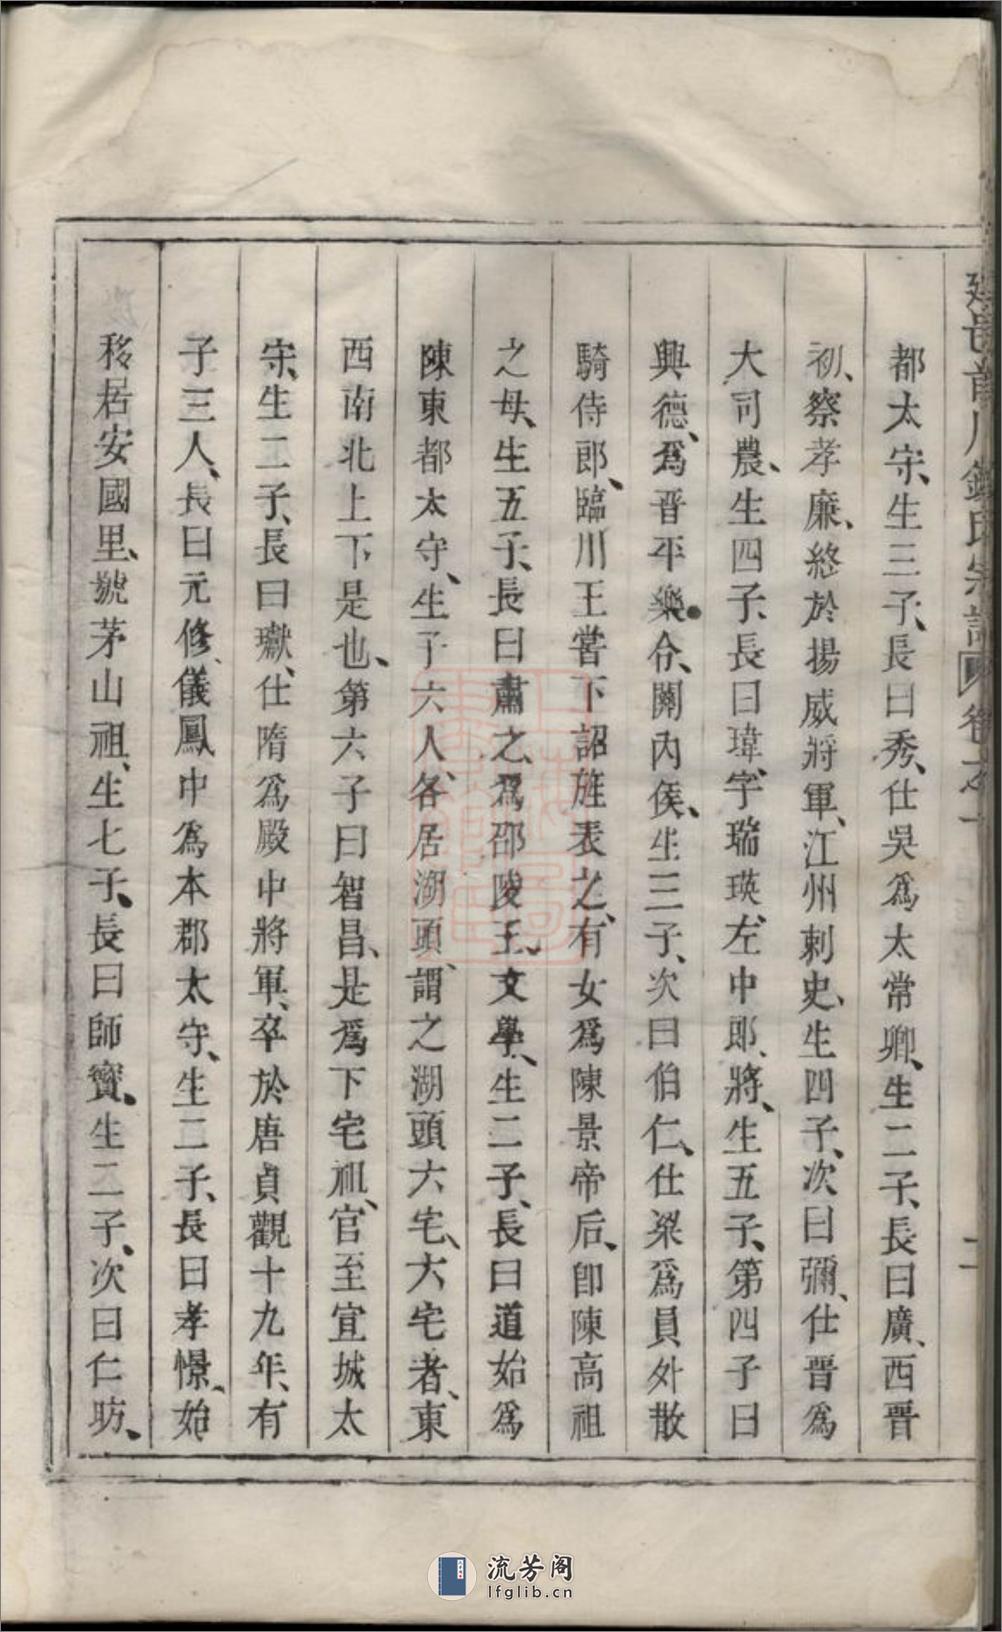 都太守、生三子、長曰秀、仕吳爲太常卿、生二子、長曰廣、西晋
初、察孝廉、終於揚威將軍、江州刺史、生四子、次曰彌、仕晋爲
大司農、生四子、長曰瑋、字瑞瑛、左中郎、將、生五子、第四子曰
興德、爲晋平樂令、關內侯、生三子、次曰伯仁、仕梁爲員外散
騎侍郎、臨川王嘗下詔旌表之、有女爲陳景帝后、卽陳高祖
之母、生五子、長曰肅之、爲邵陵王、文學、生二子、長曰道始爲
陳東都太守、生子六人、各居湖頭、謂之湖頭六宅、六宅者、東
西南北上下是也、第六子曰智昌、是爲下宅祖、官至宜城太
守、生二子、長曰瓛、仕隋爲殿中將軍、卒於唐貞觀十九年、有
子三人、長曰元修、儀鳳中爲本郡太守、生二子、長曰孝憬、始
移居安國里、號茅山祖、生七子、長曰師寳、生二子、次曰仁昉、
流芳阁
lfglib.cn